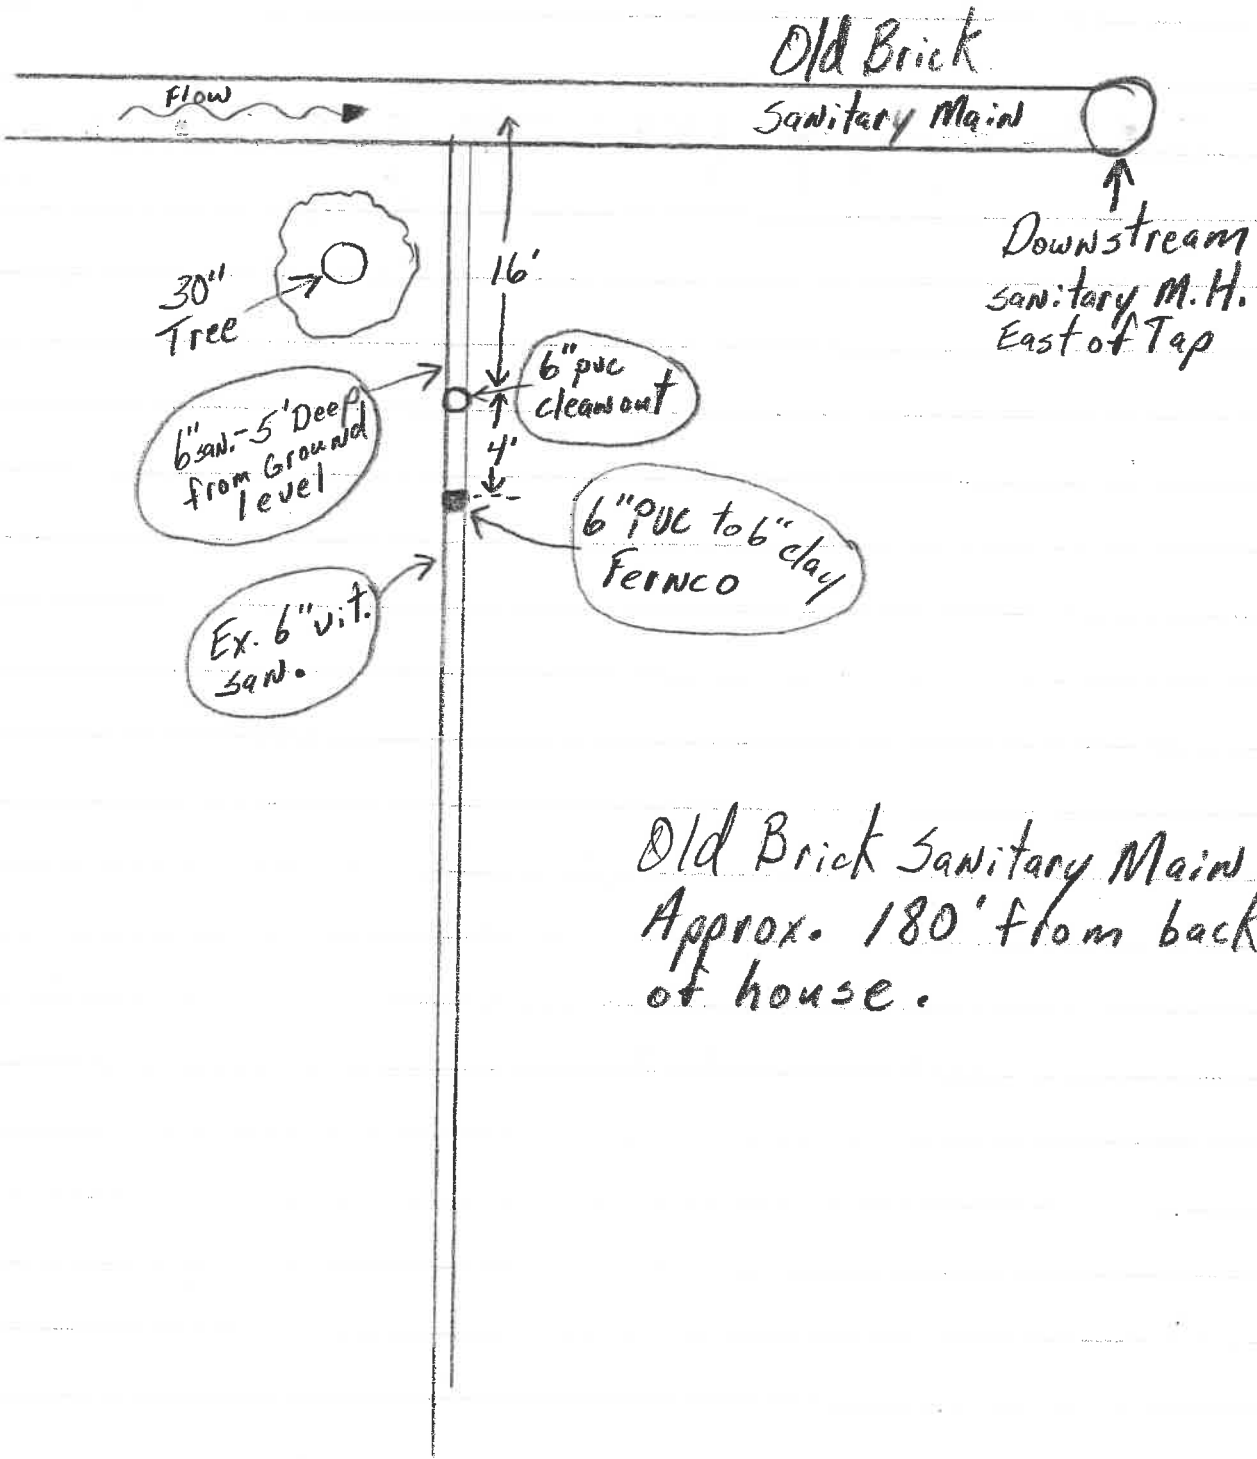 Old Brick
Sanitary Main
Flow
Downstream
sanitary M.H.
East of Tap
30"
Tree
16'
6" pvc
cleanout
4'
6" san. - 5' Deep
from Ground
level
6" PVC to 6" clay
Fernco
Ex. 6" vit.
san.
Old Brick Sanitary Main
Approx. 180' from back
of house.